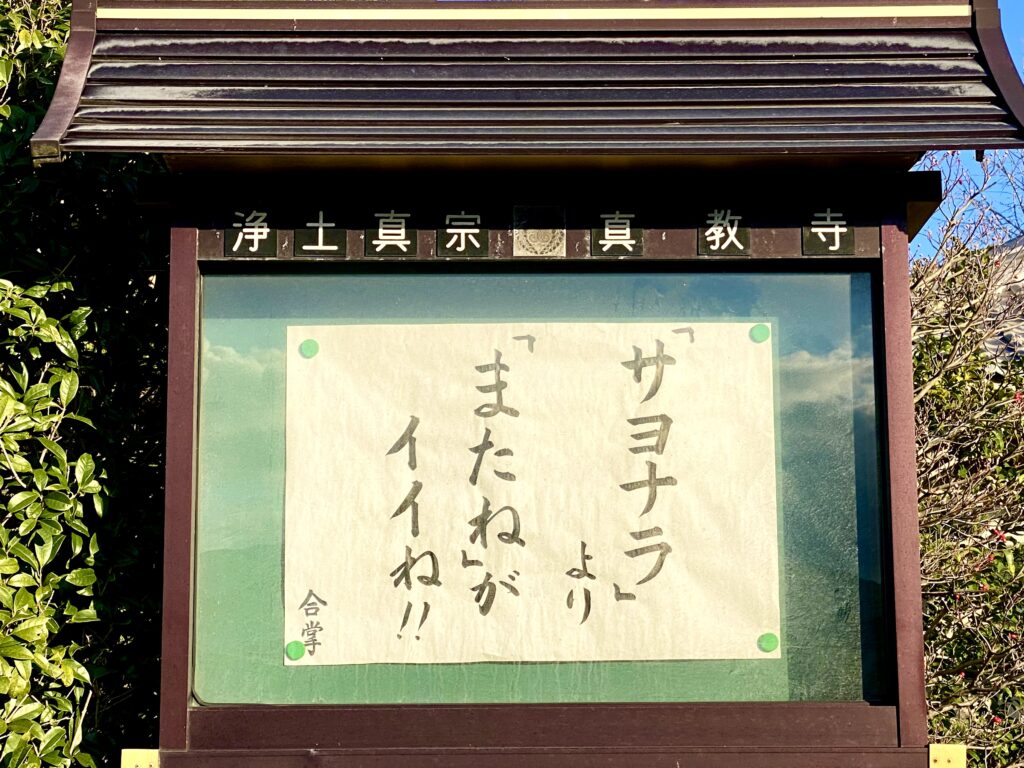 浄土真宗 真教寺
「サヨナラ」
より
「またね」が
イイね!!
合掌